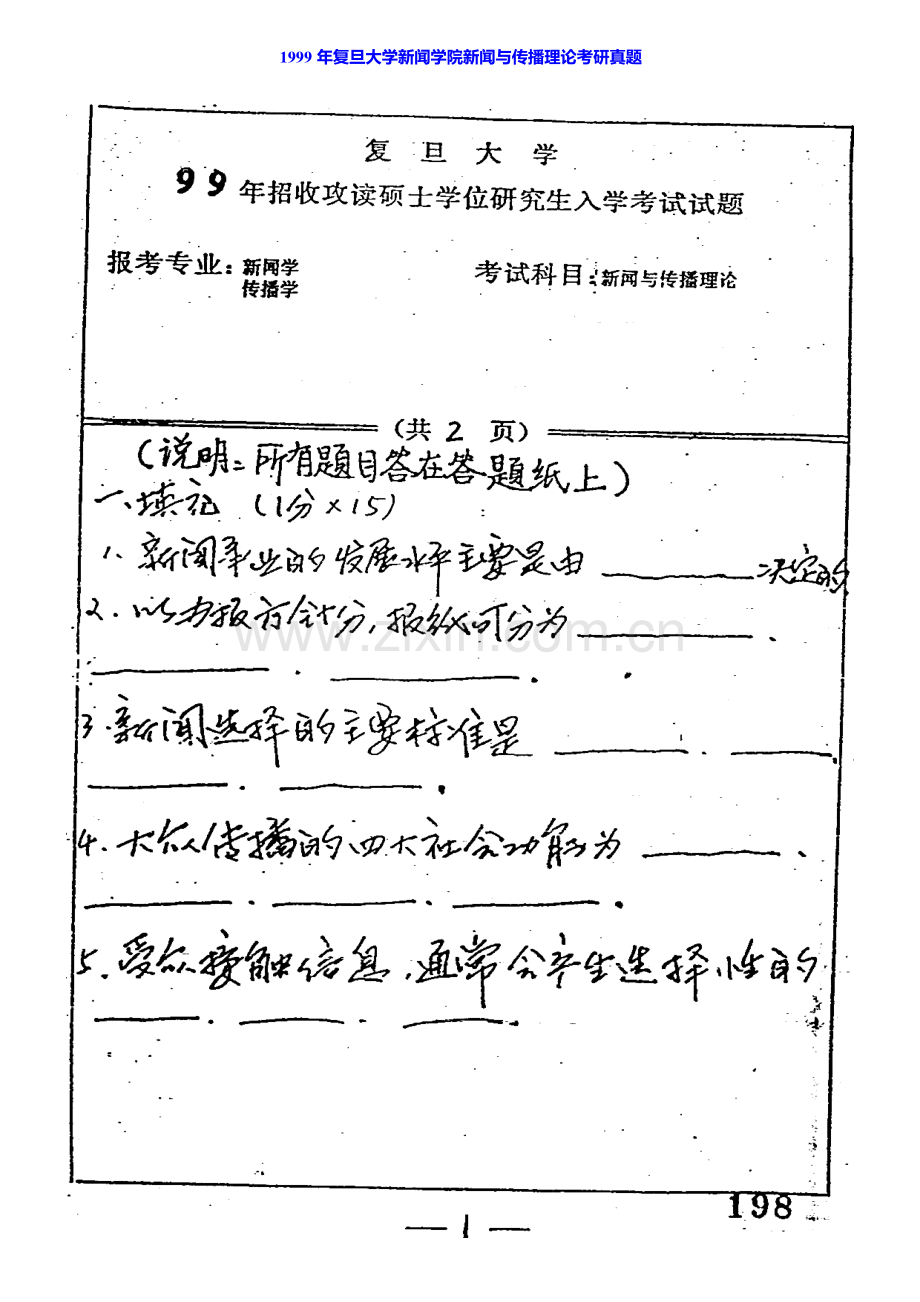 1999 年复旦大学新闻学院新闻与传播理论考研真题
复 旦 大 学
99 年招收攻读硕士学位研究生入学考试试题
报考专业：新闻学 考试科目：新闻与传播理论
传播学
（共 2 页）
（说明：所有题目答在答题纸上）
一、填充 （1分×15）
1、新闻事业的发展水平主要是由 ________ 决定的
2、以办报方针分，报纸可分为 ________、
________、________。
3、新闻选择的主要标准是 ________、________、
________、________。
4、大众传播的四大社会功能为 ________、
________、________、________。
5、受众接触信息，通常会产生选择性的
________、________、________。
www.zixin.com.cn
198
— 1 —